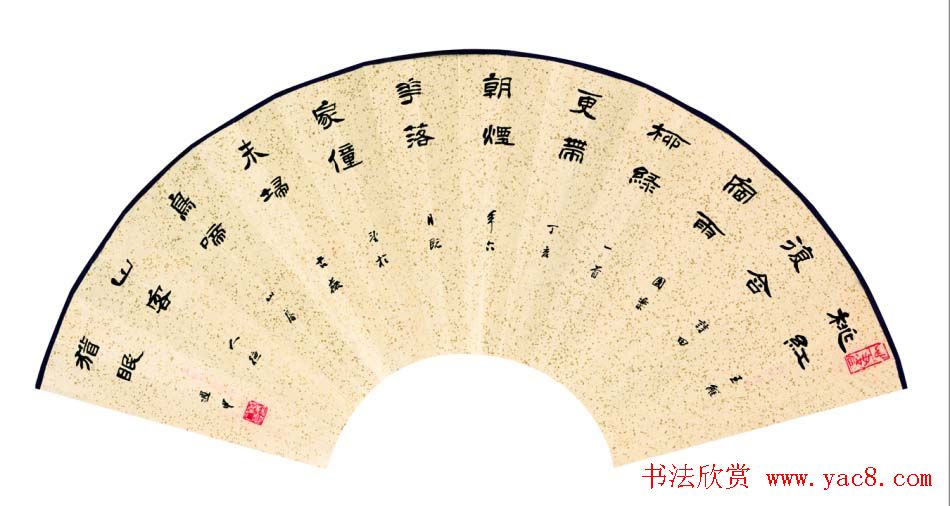 桃紅
復含
宿雨
柳綠
更帶
朝煙
華落
家僮
未埽
鳥啼
山客
猶眠
王維
詩田
園樂
一首
丁亥
年六
月既
书法欣赏 www.yac8.com